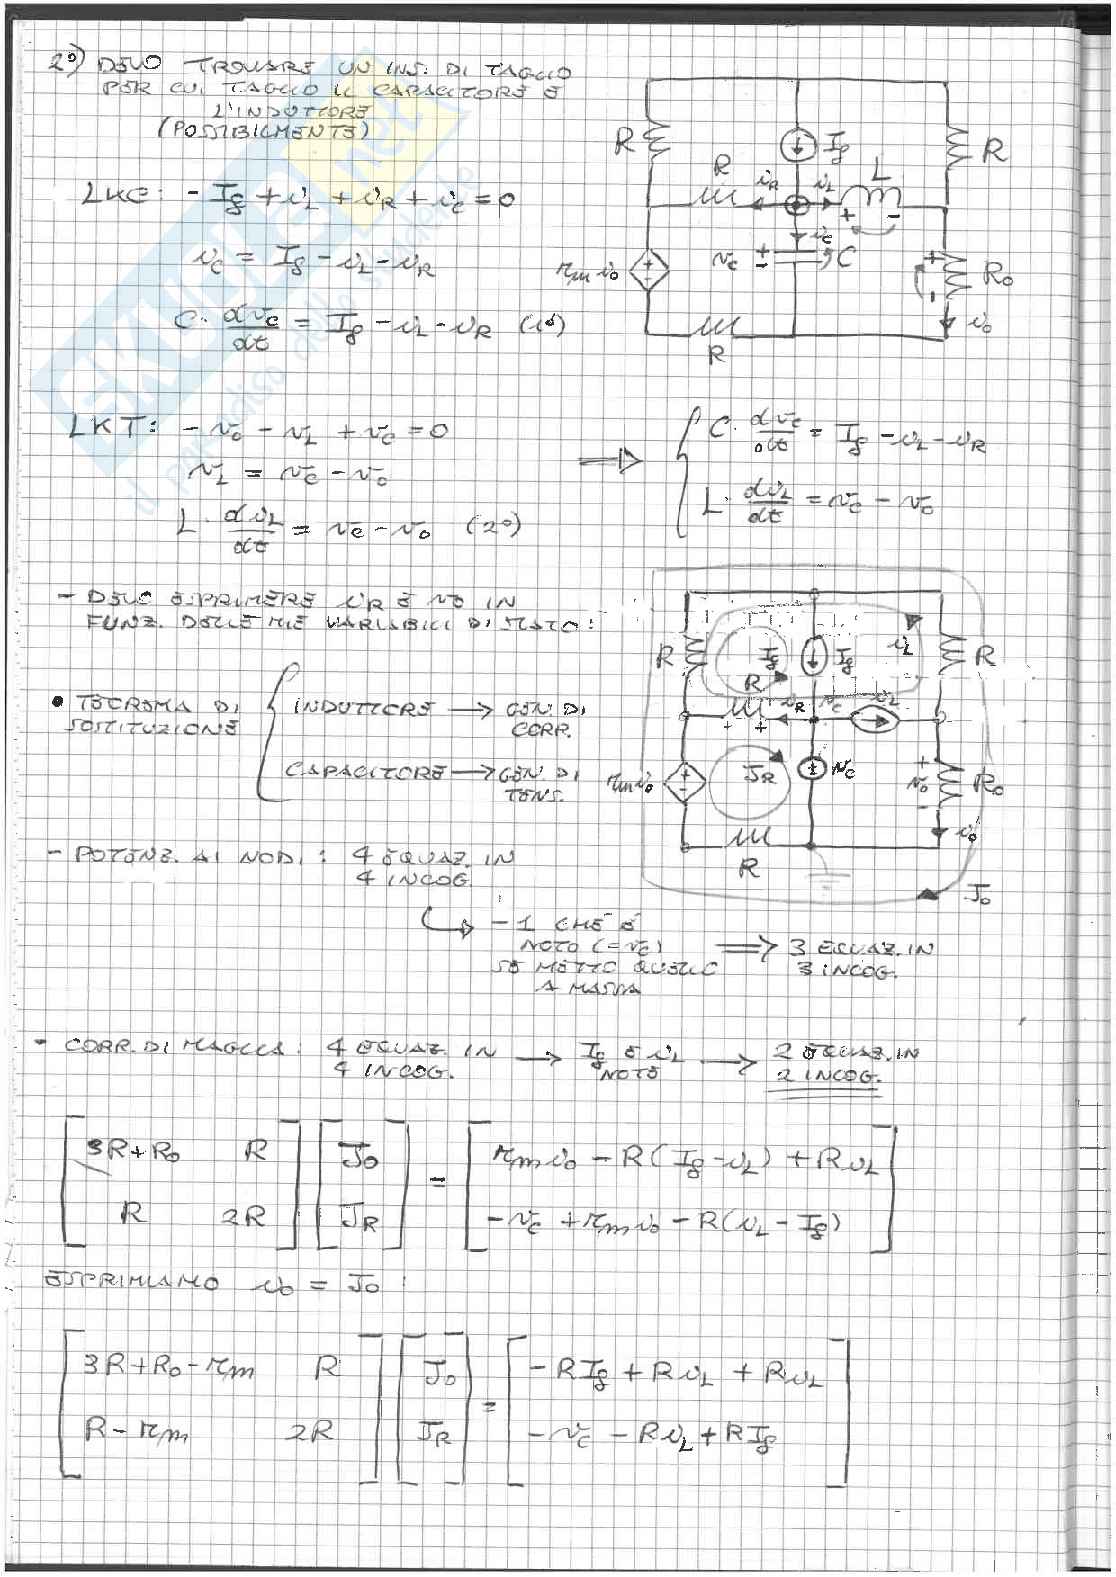 2°) DEVO TROVARE UN INS. DI TAGLIO
PER CUI TAGLIO IL CAPACITORE E
L'INDUTTORE
(POSSIBILMENTE)
LKC: - Ig + iL + iR + ic = 0
ic = Ig - iL - iR
C · dvc/dt = Ig - iL - iR (1°)
R
Ig
R
R
iR
iL
L
+ -
ic
rm io
+
-
vc
+
-
C
+
-
Ro
io
R
LKT: - vo - vL + vc = 0
vL = vc - vo
L · diL/dt = vc - vo (2°)
⇒
C · dvc/dt = Ig - iL - iR
L · diL/dt = vc - vo
- DEVO ESPRIMERE iR E vo IN
FUNZ. DELLE MIE VARIABILI DI STATO:
• TEOREMA DI
SOSTITUZIONE
INDUTTORE → GEN. DI
CORR.
CAPACITORE → GEN. DI
TENS.
R
Ig
Ig
iL
R
R
iR
vc
iL
rm io
JR
vc
+
vo
-
Ro
io
R
Jo
- POTENZ. AI NODI: 4 EQUAZ. IN
4 INCOG.
- 1 CHE È
NOTO (= vc)
SE METTO QUELLO
A MASSA
⇒ 3 EQUAZ. IN
3 INCOG.
- CORR. DI MAGLIA: 4 EQUAZ. IN
4 INCOG.
→ Ig E iL
NOTE
→ 2 EQUAZ. IN
2 INCOG.
[3R + Ro R] [Jo] = [rm io - R(Ig - iL) + R iL]
[R 2R] [JR] [- vc + rm io - R(iL - Ig)]
ESPRIMIAMO io = Jo:
[3R + Ro - rm R] [Jo] = [- R Ig + R iL + R iL]
[R - rm 2R] [JR] [- vc - R iL + R Ig]